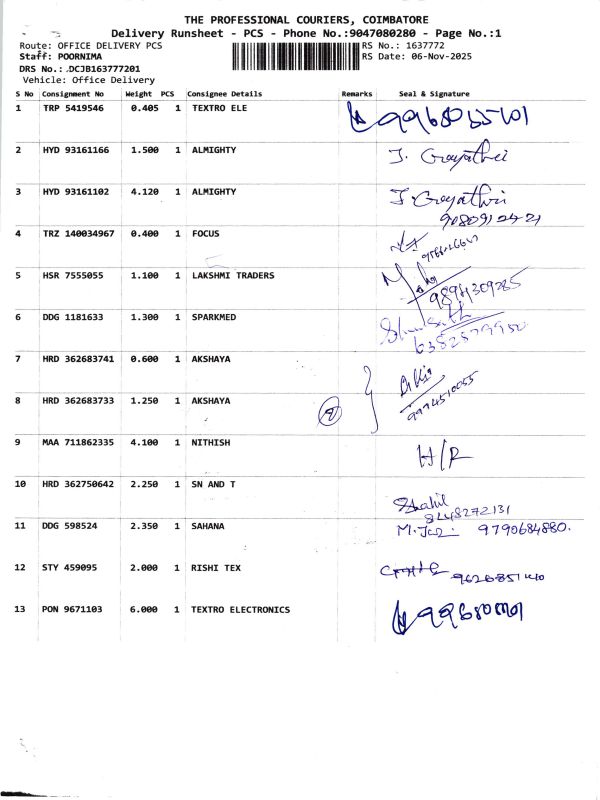 THE PROFESSIONAL COURIERS, COIMBATORE
Delivery Runsheet - PCS - Phone No.:9047080280 - Page No.:1
Route: OFFICE DELIVERY PCS RS No.: 1637772
Staff: POORNIMA RS Date: 06-Nov-2025
DRS No.: DCJB163777201
Vehicle: Office Delivery
S No Consignment No Weight PCS Consignee Details Remarks Seal & Signature
1 TRP 5419546 0.405 1 TEXTRO ELE
2 HYD 93161166 1.500 1 ALMIGHTY J. Gayathri
3 HYD 93161102 4.120 1 ALMIGHTY J. Gayathri
4 TRZ 140034967 0.400 1 FOCUS
5 HSR 7555055 1.100 1 LAKSHMI TRADERS
9894309285
6 DDG 1181633 1.300 1 SPARKMED
6382579950
7 HRD 362683741 0.600 1 AKSHAYA
8 HRD 362683733 1.250 1 AKSHAYA
9974510055
9 MAA 711862335 4.100 1 NITHISH H/R
10 HRD 362750642 2.250 1 SN AND T
8248272131
11 DDG 598524 2.350 1 SAHANA 9790684880.
12 STY 459095 2.000 1 RISHI TEX
13 PON 9671103 6.000 1 TEXTRO ELECTRONICS